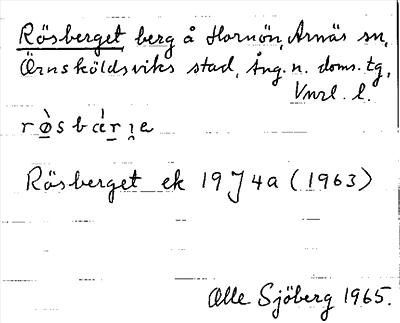 Rösberget, berg å Hornön, Arnäs sn,
Örnsköldsviks stad, Ång. n. doms. tg,
Vnrl. l.
rø̀sbǽr̯e
Rösberget ek 19 J 4a (1963)
Olle Sjöberg 1965.